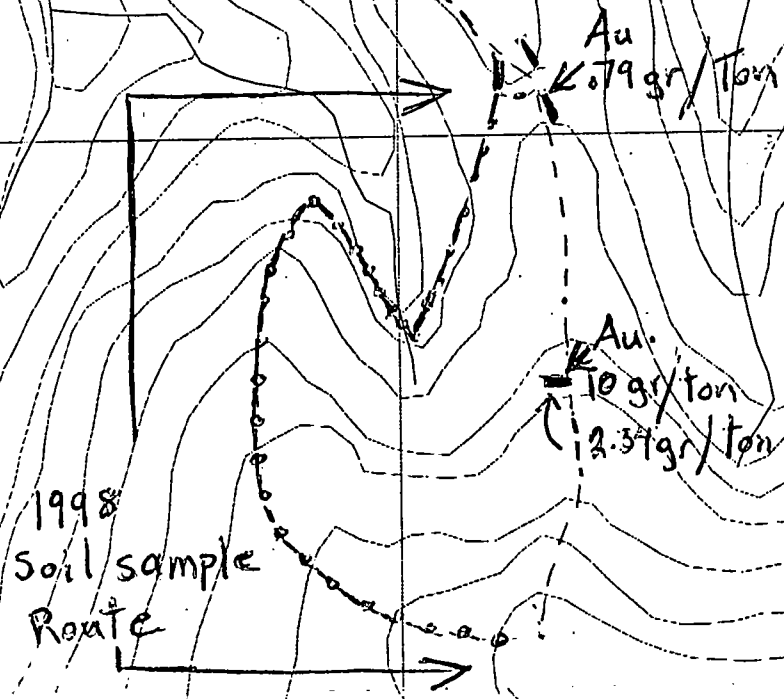 Au
.79 gr/Ton
Au.
10 gr/ton
2.54gr/ton
1998
Soil sample
Route